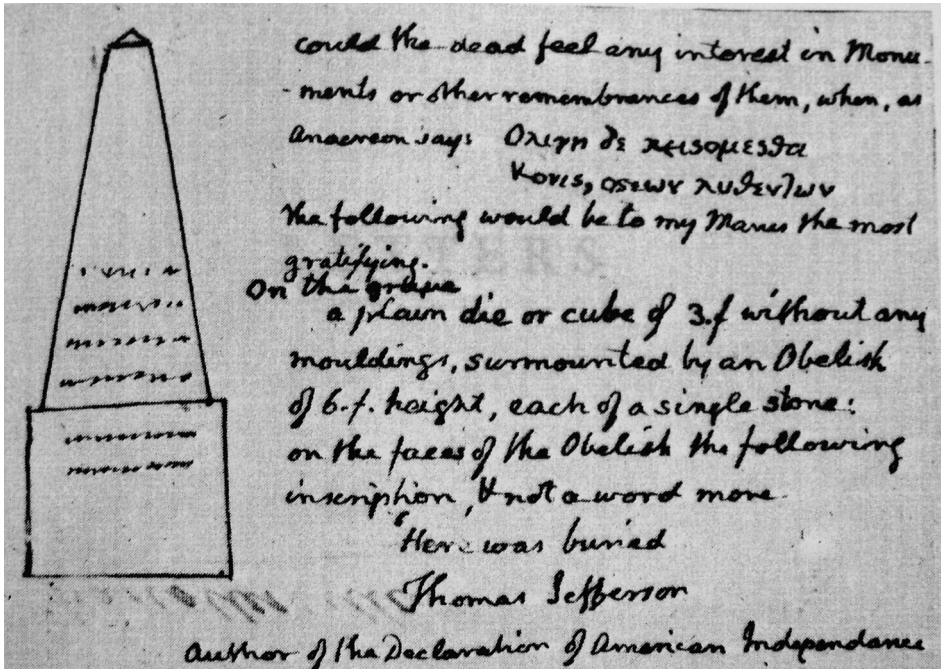 could the dead feel any interest in Monu-
-ments or other remembrances of them, when, as
Anacreon says: Ολιγη δε κεισομεσθα
Κονις, οσεων λυθενlων
the following would be to my Manes the most
gratifying.
On the grave
a plain die or cube of 3.f without any
mouldings, surmounted by an Obelisk
of 6.f. height, each of a single stone:
on the faces of the Obelisk the following
inscription, & not a word more
"Here was buried
Thomas Jefferson
Author of the Declaration of American Independance